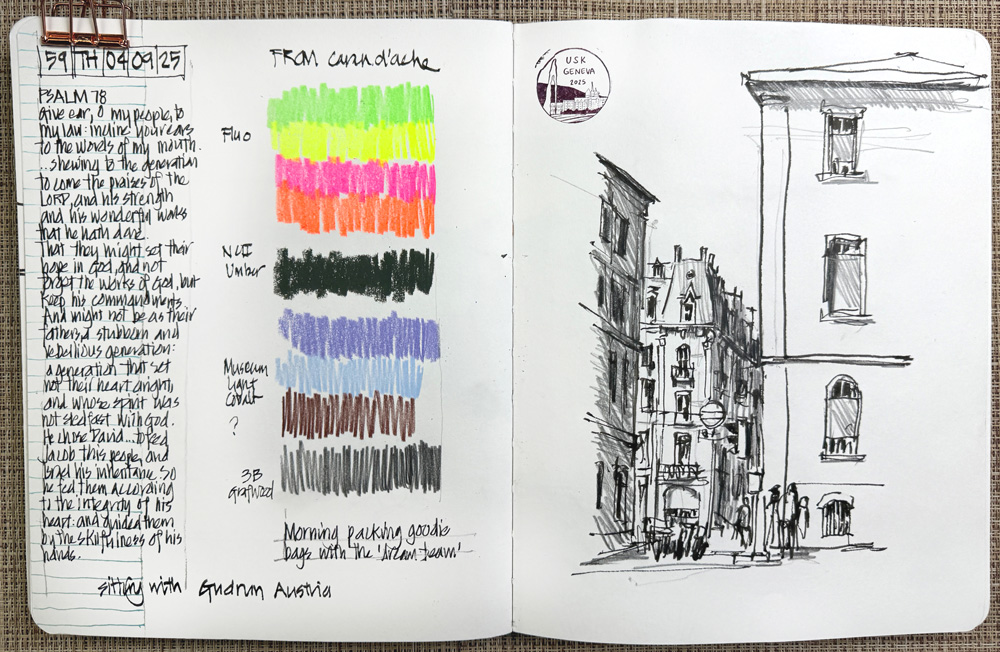 59 TH 04 09 25
PSALM 78
Give ear, O my people, to
my law: incline your ears
to the words of my mouth.
...shewing to the generation
to come the praises of the
LORD, and his strength
and his wonderful works
that he hath done.
That they might set their
hope in God, and not
forget the works of God, but
keep his commandments.
And might not be as their
fathers, a stubborn and
rebellious generation:
a generation that set
not their heart aright,
and whose spirit was
not stedfast with God.
He chose David...to feed
Jacob this people, and
Israel his inheritance. So
he fed them according
to the integrity of his
heart: and guided them
by the skilfulness of his
hands.
sitting with Gudrun Austria
FROM caran d'ache
Fluo
Umber
Museum
Light
Cobalt
?
3B
Grafwood
Morning packing goodie
bags with the 'dream team'
USK
GENEVA
2025